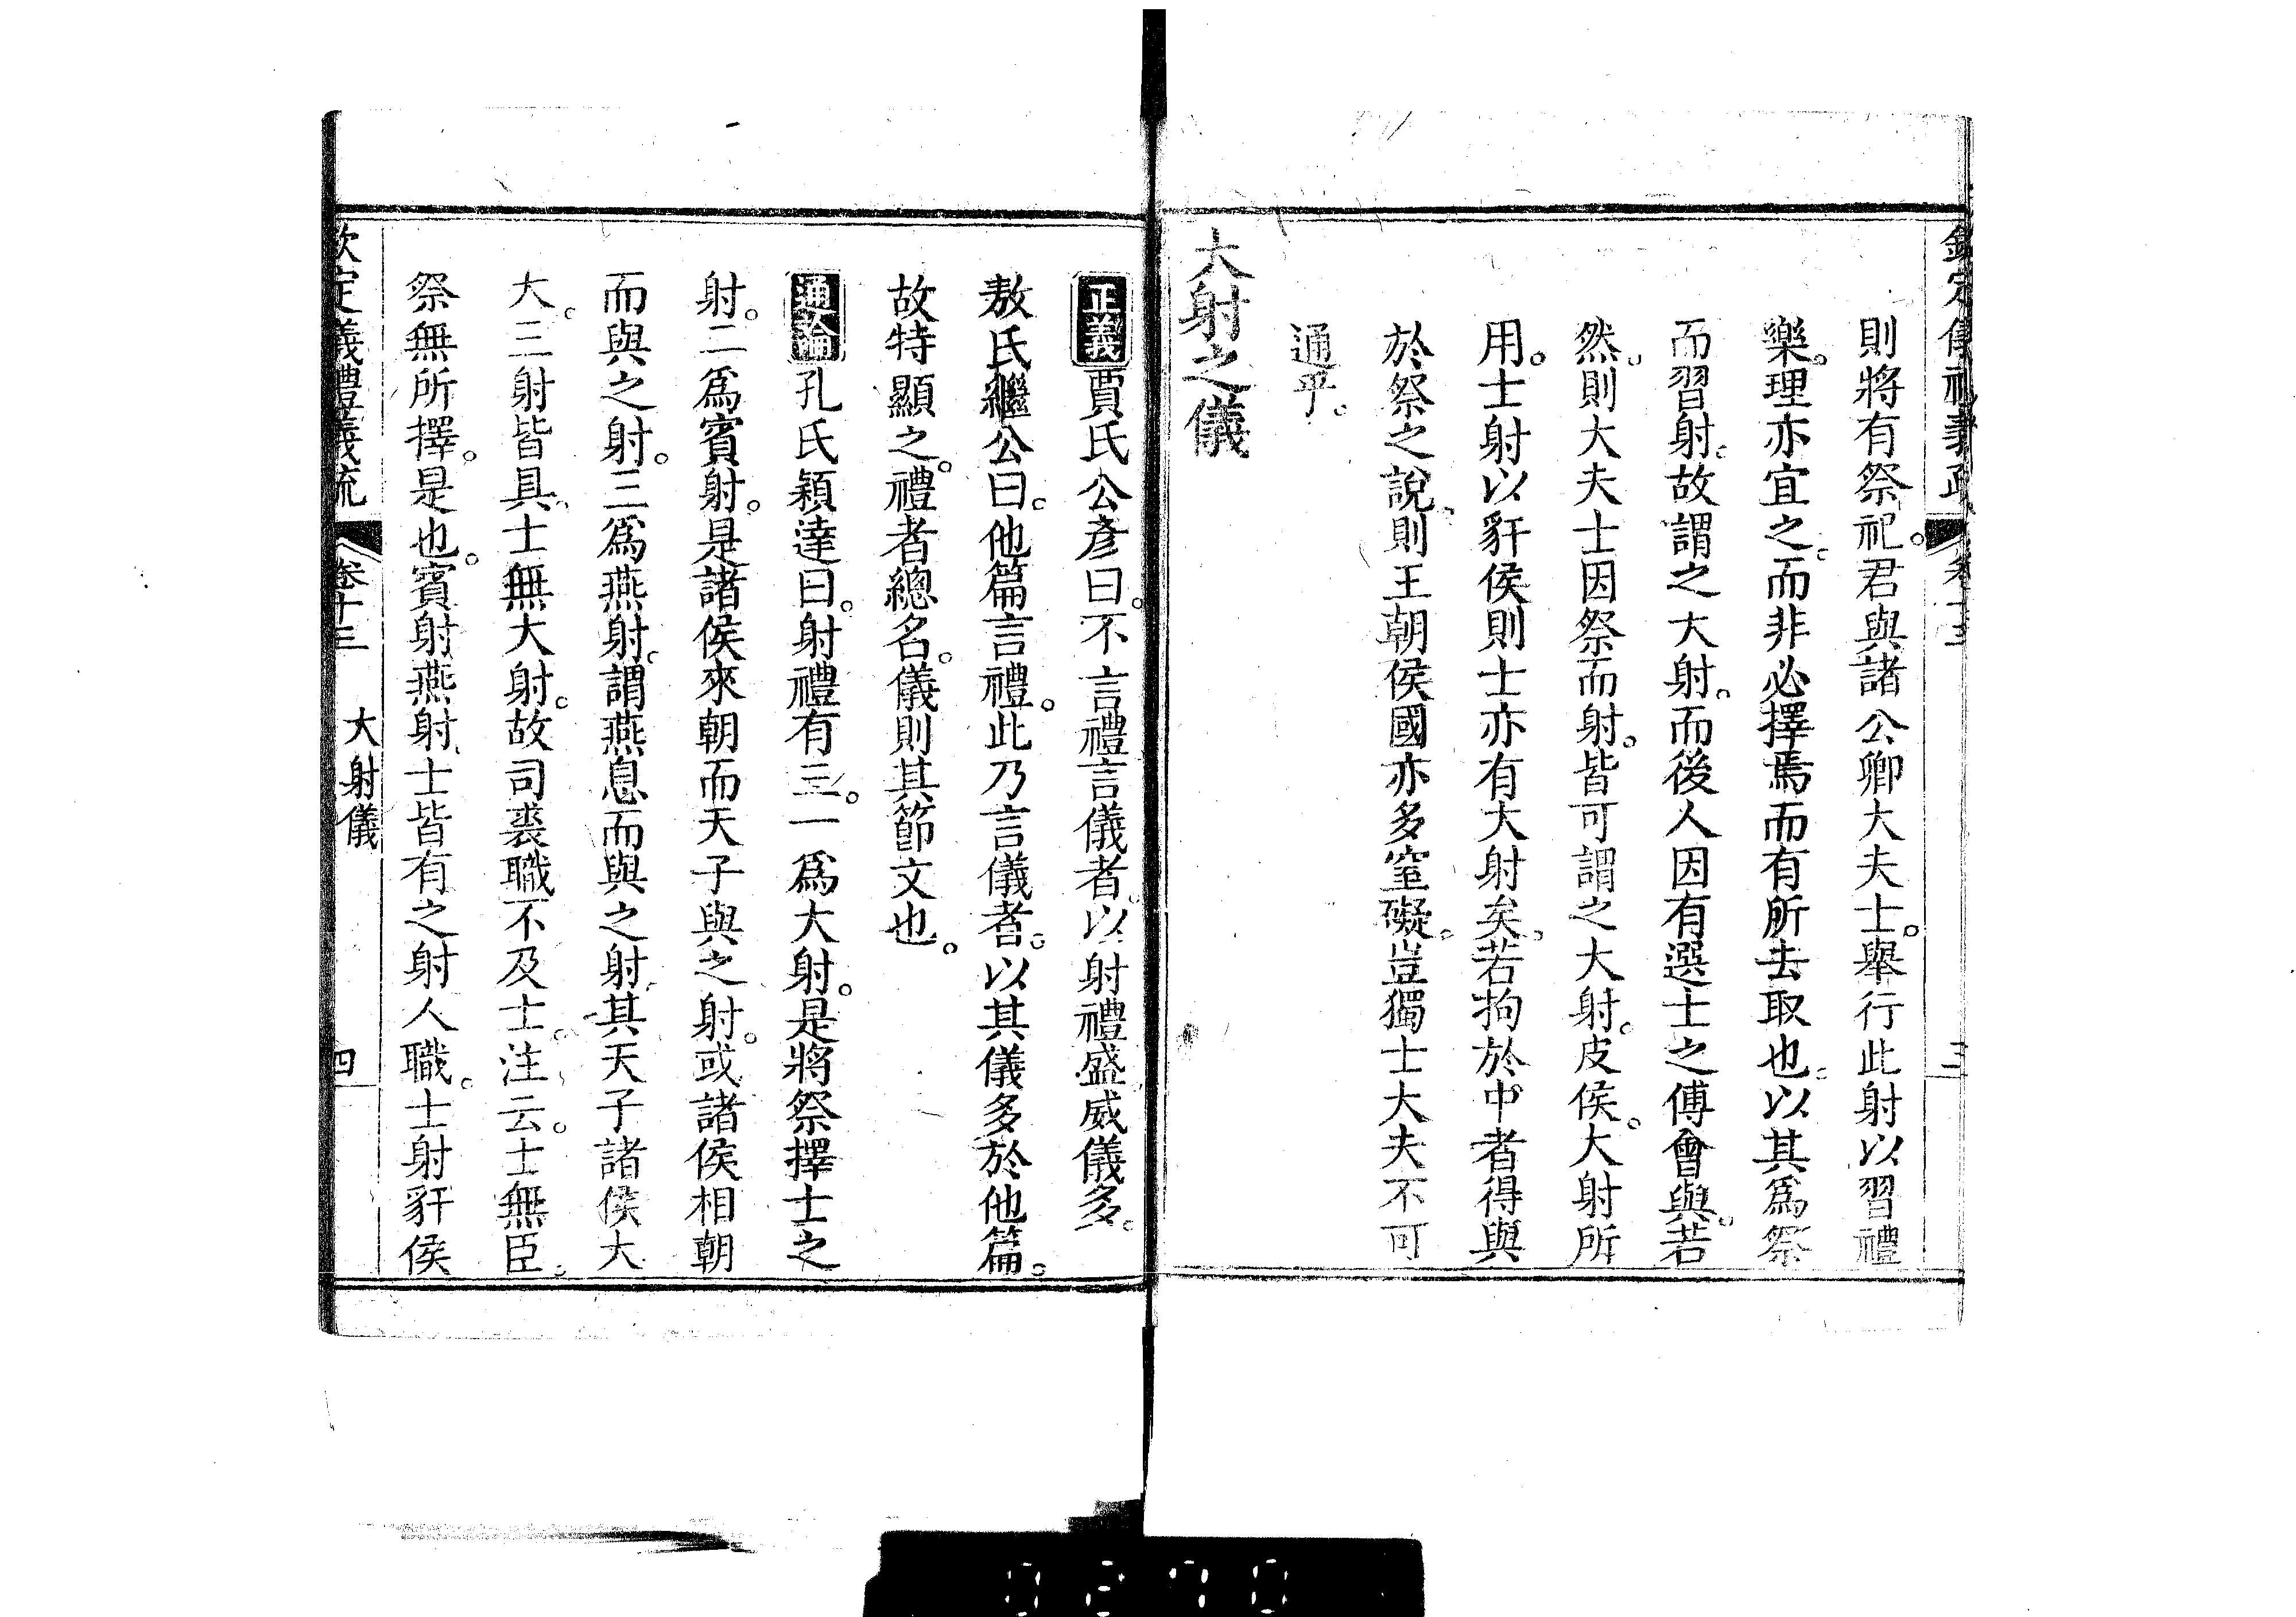 則將有祭祀。君與諸公卿大夫士。舉行此射以習禮
樂。理亦宜之。而非必擇焉而有所去取也。以其爲祭
而習射。故謂之大射。而後人因有選士之傅會與。若
然。則大夫士因祭而射。皆可謂之大射。皮侯。大射所
用。士射以豻侯則士亦有大射矣。若拘於中者得與
於祭之說。則王朝侯國亦多窒礙。豈獨士大夫不可
通乎。
大射之儀
正義賈氏公彥曰。不言禮言儀者。以射禮盛威儀多。
敖氏繼公曰。他篇言禮。此乃言儀者。以其儀多於他篇。
故特顯之。禮者總名。儀則其節文也。
通論孔氏穎達曰。射禮有三。一爲大射。是將祭擇士之
射。二爲賓射。是諸侯來朝而天子與之射。或諸侯相朝
而與之射。三爲燕射。謂燕息而與之射。其天子諸侯大
大。三射皆具。士無大射。故司裘職不及士。注云。士無臣。
祭無所擇。是也。賓射燕射。士皆有之射人職。士射豻侯
欽定儀禮義疏 卷十三 大射儀 四